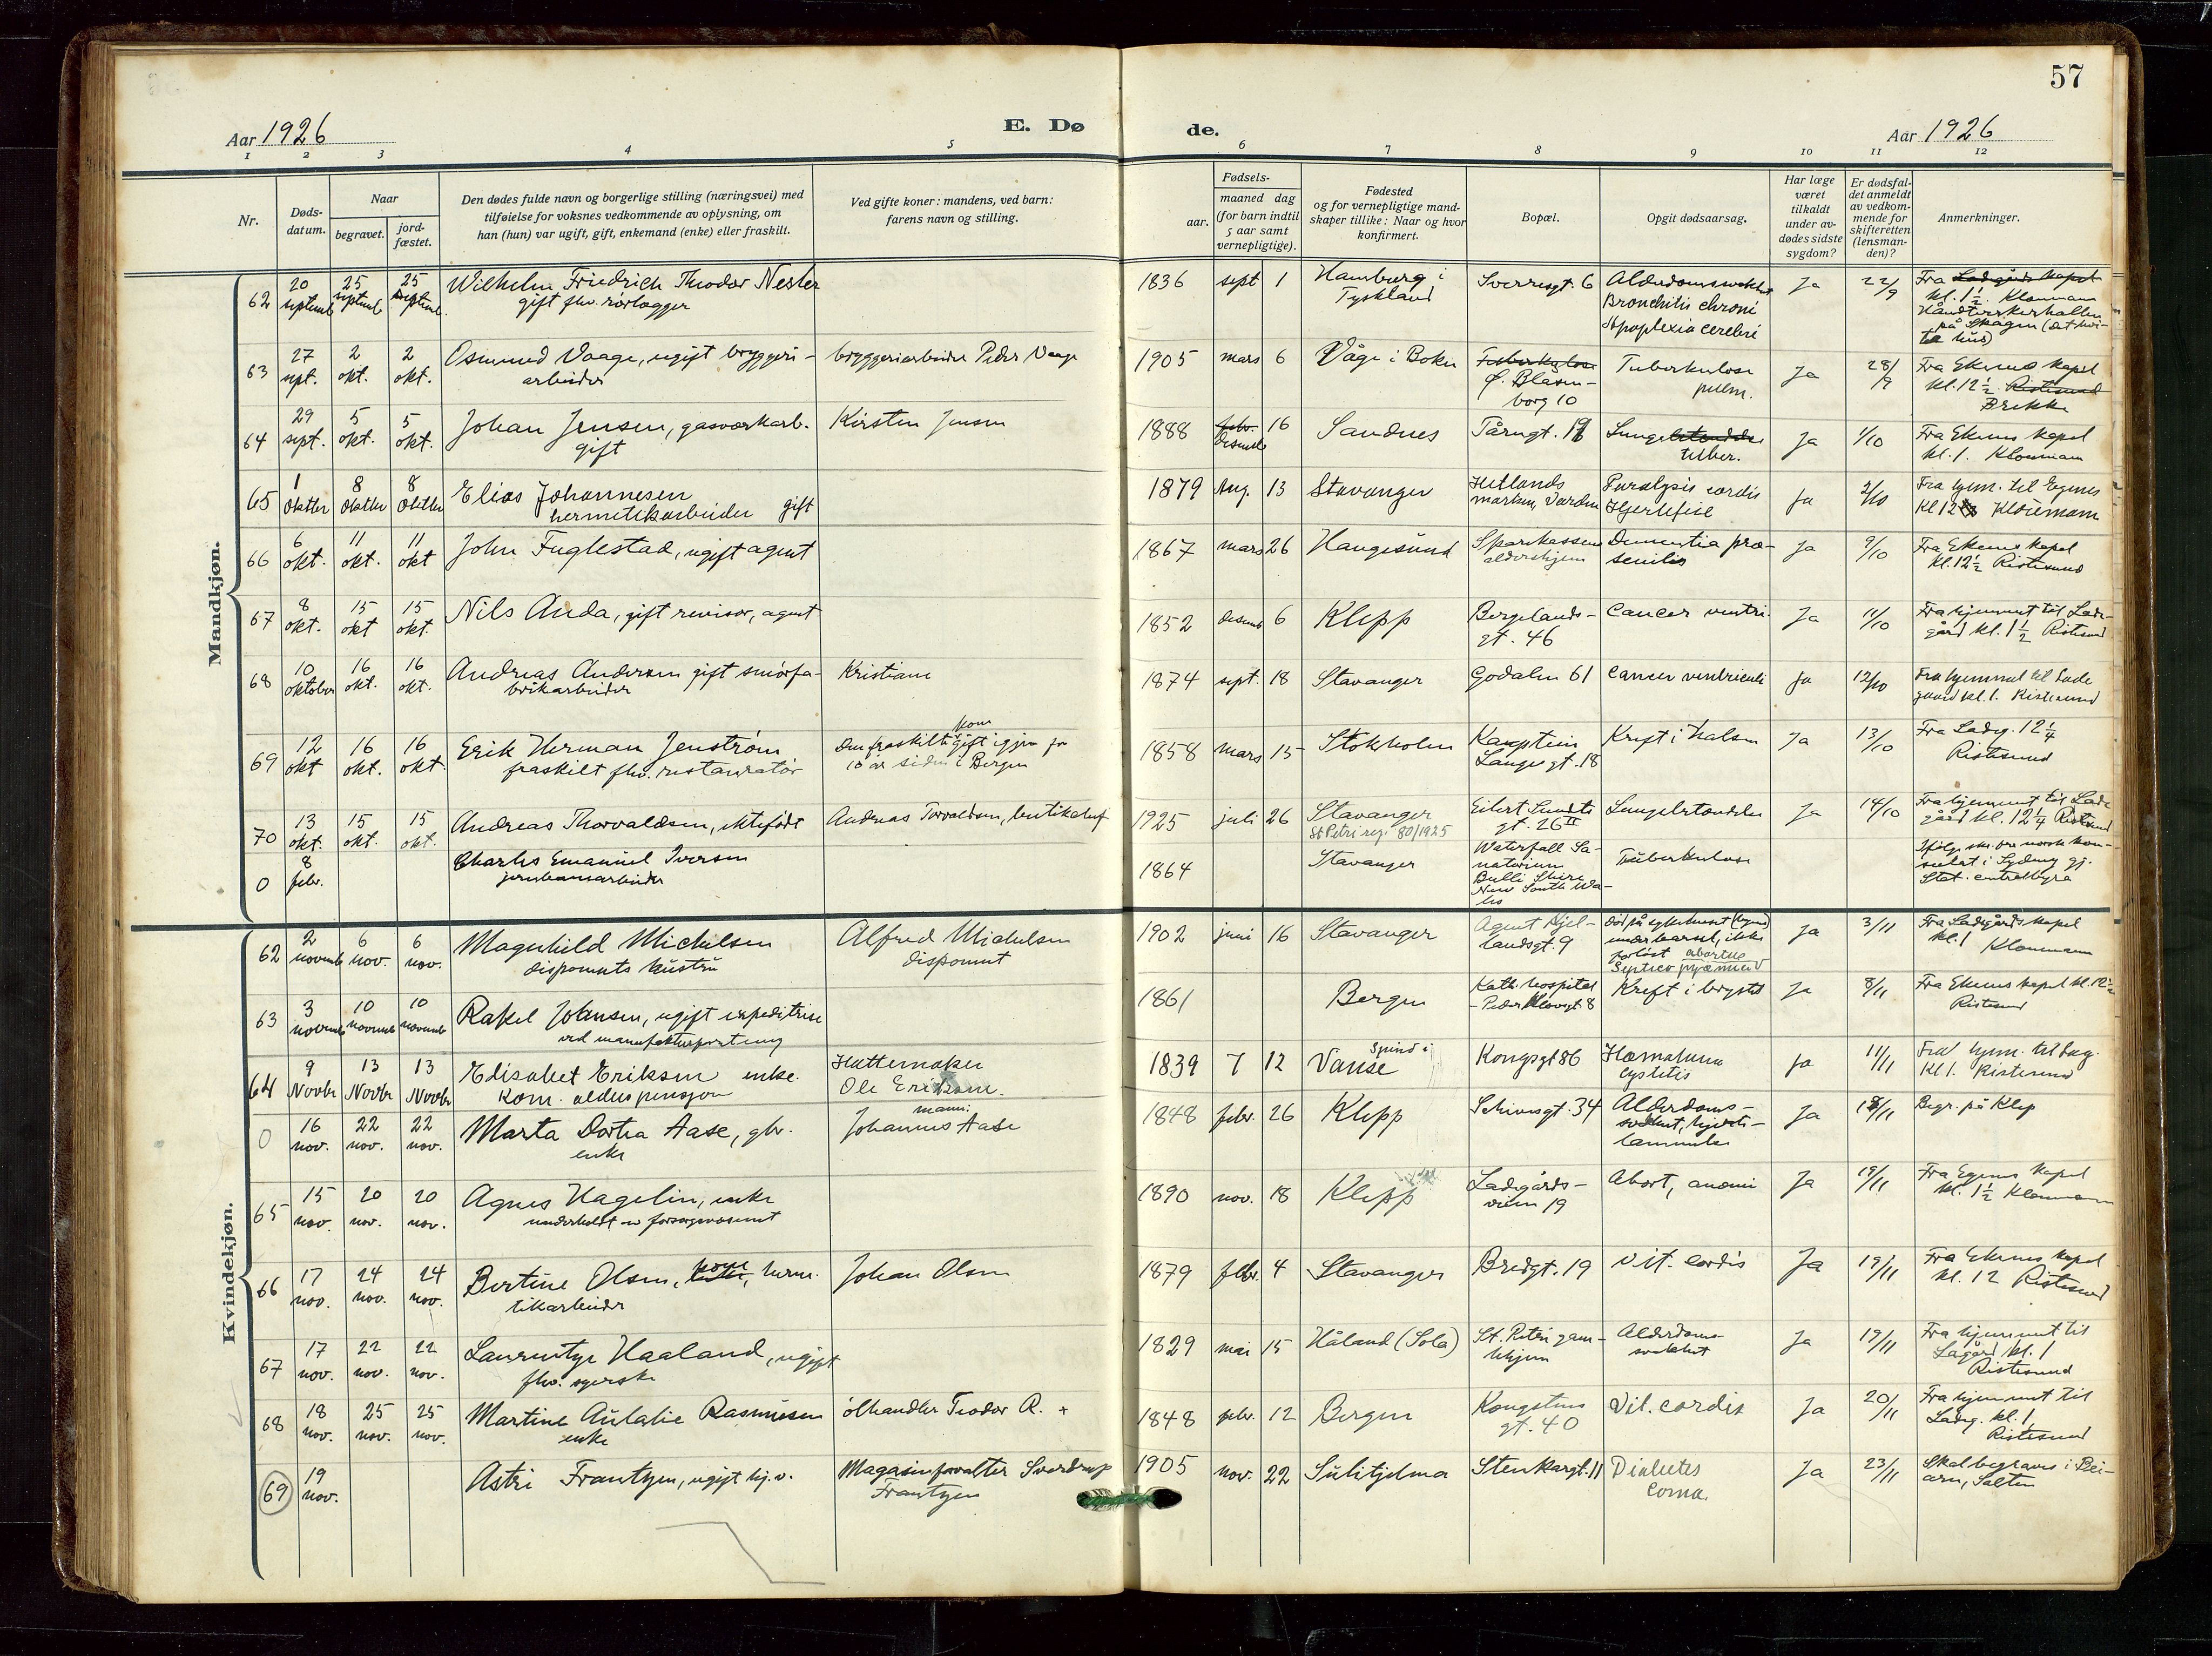 57
Aar 1926
E. Dø
de.
Aar 1926
1 2 3 4 5 6 7 8 9 10 11 12
Nr.
Døds-
datum.
Naar
begravet.
jord-
fæstet.
Den dødes fulde navn og borgerlige stilling (næringsvei) med
tilføielse for voksnes vedkommende av oplysning, om
han (hun) var ugift, gift, enkemand (enke) eller fraskilt.
Ved gifte koner: mandens, ved barn:
farens navn og stilling.
Fødsels-
aar.
maaned dag
(for barn indtil
5 aar samt
vernepligtige).
Fødested
og for vernepligtige mand-
skaper tillike: Naar og hvor
konfirmert.
Bopæl.
Opgit dødsaarsag.
Har læge
været
tilkaldt
under av-
dødes sidste
sygdom?
Er dødsfal-
det anmeldt
av vedkom-
mende for
skifteretten
(lensman-
den)?
Anmerkninger.
Mandkjøn.
62 20 septemb 25 septemb 25 septemb
Wilhelm Friedrich Theodor Nester
gift fhv. rørlægger
1836 sept 1 Hamburg i
Tyskland
Sverresgt. 6
Alderdomssvakhet
Bronchitis chroni
Apoplexia cerebri
Ja 22/9
Fra Ladegårds kapel
kl. 1½. Kloumann
Håndverkerhallen
på Skagen (det hvi-
te hus)
63 27 spt. 2 okt. 2 okt.
Osmund Vaage, ugift bryggeri-
arbeider
bryggeriarbeider Peder Vaage
1905 mars 6 Våge i Bokn
Tuberkulose
Ø. Blasen-
borg 10
Tuberkulose
pulm.
Ja 28/9
Fra Ekenes kapel
kl. 12½ Ristesund
Brekke
64 29 sept. 5 okt. 5 okt.
Johan Jensen, gasverkarb.
gift
Kirsten Jensen
1888 febr. 16
Desemb
Sandnes Tårngt. 19
Lungebetændelse
tuber.
Ja 1/10
Fra Ekenes kapel
kl. 1. Kloumann
65 1 Oktbr 8 Oktbr 8 Oktbr
Elias Johannesen
hermetikarbeider gift
1879 Aug. 13 Stavanger
Hetlands
marken, Varden
Paralysis cordis
Hjertefeil
Ja 2/10
Fra hjem. til Egenes
Kl 12 Kloumann
66 6 okt. 11 okt. 11 okt
John Fuglestad, ugift agent
1867 mars 26 Haugesund
Sparekassens
aldershjem
Dementia præ-
senilis
Ja 9/10
Fra Ekenes kapel
kl. 12½ Ristesund
67 8 okt. 15 okt 15 okt.
Nils Anda, gift revisor, agent
1852 desemb 6 Klepp
Bergelands-
gt. 46
Cancer ventri.
Ja 11/10
Fra hjemmet til Lade-
gård kl. 1½ Ristesund
68 10 oktober 16 okt. 16 okt.
Andreas Andersen gift smørfa-
brikarbeider
Kristiane
1874 sept. 18 Stavanger Godalen 61 Cancer ventriculi Ja 12/10
Fra hjemmet til Lade
gaard kl. 1. Ristesund
69 12 okt 16 okt. 16 okt.
Erik Herman Jenström
fraskilt fhv. restauratør
kone
Den fraskilte gift igjen for
10 år siden i Bergen
1858 mars 15 Stokholm
Kaptein
Langes gt. 18
Kreft i halsen
Ja 13/10
Fra Ladeg. 12¼
Ristesund
70 13 okt. 15 okt. 15 okt.
Andreas Thorvaldsen, ektefødt
Andreas Torvaldsen,
1925 juli 26 Stavanger
St Petri reg. 80/1925
Eilert Sundts
gt. 26 II
Lungebetændelse
Ja 14/10
Fra hjemmet til Lade
gård kl. 12¼ Ristesund
0 8 febr.
Charles Emanuel Iversen
jernbanearbeider
1864 Stavanger
Waterfall Sa-
natorium
Bulli Shire
New South Wa-
les
Tuberkulose
Ifølge skr. fra norsk kon-
sulat i Sydney gj.
Stat. centralbyrå
Kvindekjøn.
62 2 novemb 6 nov. 6 nov.
Magnhild Michelsen
disponents hustru
Alfred Michelsen
disponent
1902 juni 16 Stavanger
Agent Kjel-
landsgt. 9
død på sykehuset (byens)
under barsel, ikke
forløst abortus
Septico pyæmien
Ja 3/11
Fra Ladegårds kapel
kl. 1
Kloumann
63 3 novemb 10 novemb 10 novemb
Rakel Johnsen, ugift expeditrise
ved manufakturforretning
1861 Bergen
Kath. hospital
- Peder Klowsgt 8
Kreft i brystet
Ja 8/11
Fra Ekenes kapel kl. 12½
Ristesund
64 9 Novbr 13 Novbr 13 Novbr
Elisabet Eriksen enke.
Kom. alderspensjon
Hattemaker
Ole Eriksen.
1839 7 12 Vanse
Spind i
Kongsgt 86
Hæmaturia
Cystitis
Ja 11/11
Fra hjem. til Lag.
Kl 1. Ristesund
0 16 nov. 22 nov. 22 nov.
Marta Dortea Aase, gbr.
enke
mann:
Johannes Aase
1848 febr. 26 Klepp Schivesgt. 34
Alderdoms-
svakhet, hjerte-
lammelse
Ja 18/11
Begr. på Klep
65 15 nov. 20 nov. 20 nov.
Agnes Hagelin, enke
underholdt av forsorgsvæsenet
1890 nov. 18 Klepp
Ladegårds-
veien 19
Abort, anæmi
Ja 19/11
Fra Egenes kapel
kl. 1½ Kloumann
66 17 nov. 24 nov. 24 nov.
Bertine Olsen, kone, herme-
tikarbeider
Johan Olsen
1879 febr. 4 Stavanger Bredgt. 19 Vit. cordis Ja 19/11
Fra Ekenes kapel
kl. 12 Ristesund
67 17 nov. 22 nov. 22 nov.
Laurentze Haaland, ugift
fhv. syerske
1829 mai 15 Håland (Sola)
St. Petri gam-
lehjem
Alderdoms-
svakhet
Ja 19/11
Fra hjemmet til
Lagård kl. 1
Ristesund
68 18 nov. 25 nov. 25 nov.
Martine Aulalie Rasmussen
enke
ølhandler Teodor R. +
1848 febr. 12 Bergen
Kongstens
gt. 40
Vit. cordis
Ja 20/11
Fra hjemmet til
Ladeg. kl. 1,
Ristesund
69 19 nov.
Astri Frantzen, ugift hj. v.
Magasinforvalter Sverdrup
Frantzen
1905 nov. 22 Sulitjelma Stenkargt. 11
Diabetes
Coma.
Ja 23/11
Skal begraves i Bei-
arn, Salten